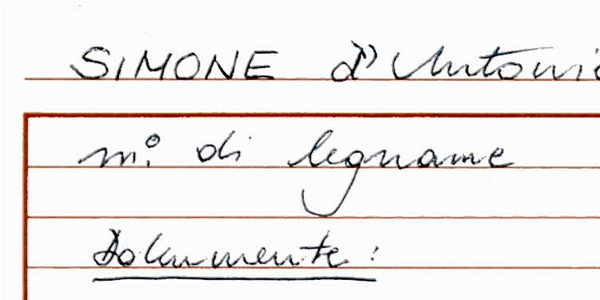 SIMONE d'Antonio
m.o di legname
Dokumente: